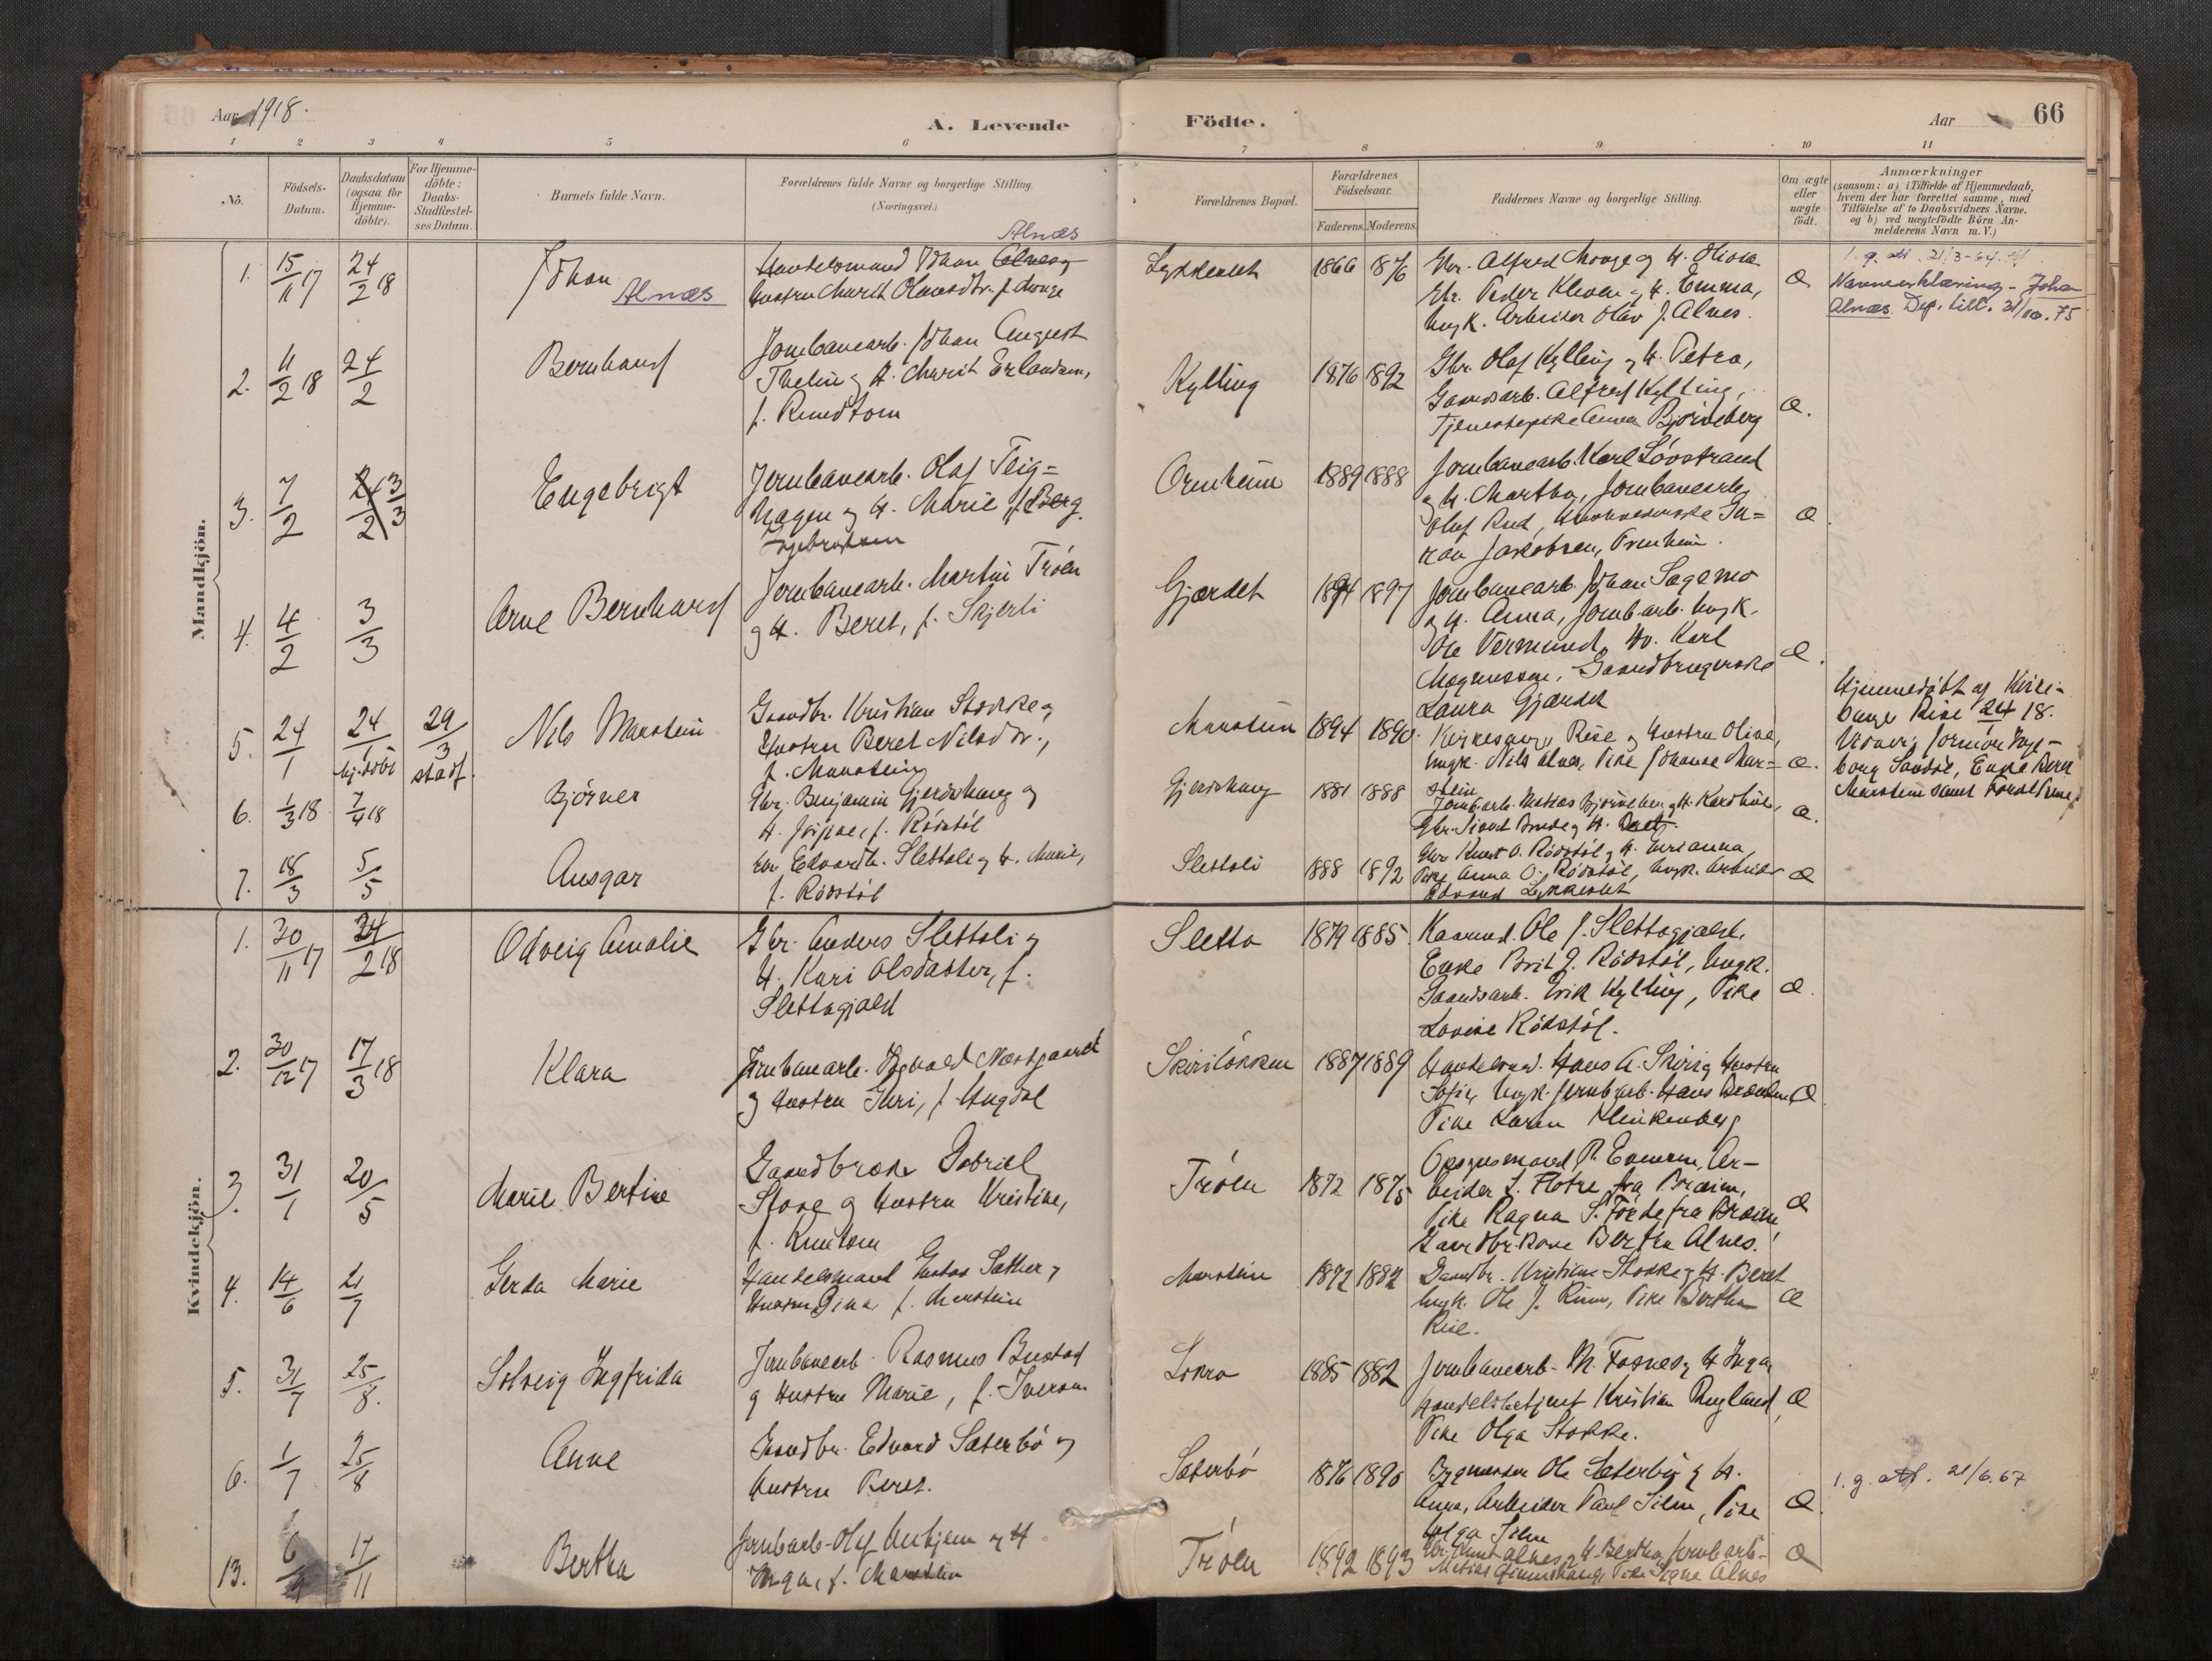 Aar 1918.
A. Levende
Födte.
Aar
66
1 2 3 4 5 6 7 8 9 10 11
No.
Födsels-
Datum.
Daabsdatum
(ogsaa for
Hjemme-
döbte).
For Hjemme-
döbte:
Daabs-
Stadfæstel-
ses Datum.
Barnets fulde Navn.
Forældrenes fulde Navne og borgerlige Stilling.
(Næringsvei.)
Forældrenes Bopæl.
Forældrenes
Födselsaar.
Faderens. Moderens.
Faddernes Navne og borgerlige Stilling.
Om ægte
eller
uægte
födt.
Anmærkninger
(saasom: a) i Tilfælde af Hjemmedaab,
hvem der har forrettet samme, med
Tilföielse af to Daabsvidners Navne.
og b) ved uægtefödte Börn An-
melderens Navn m. V.)
Mandkjön.
1. 15/11 17 24/2 18
Johan
Alnæs
Alnæs
Handelsmand Johan Alnes og
Hustru Marit Olavsdtr. f. Monge
Lykkeslet
1866 1876
Gbr. Alfred Monge og H. Oliva
Gbr. Peder Kleven og H. Emma,
Ungk. Arbeider Olav J. Alnes.
Æ
1. g. att. 21/3-64.
Navneerklæring - Johan
Alnæs. Dep. till. 31/10.75
2. 11/2 18 24/2
Bernhard
Jernbanearb. Johan August
Thelin og H. Marit Erlandsen,
Kylling
1876 1892
Gbr. Olaf Kylling og H. Petra,
Gaardsarb. Alfred Kylling,
Tjenestepike Anna Bjørneberg
Æ.
3. 7/2 24/2 3/3
Engebrigt
Jernbanearb. Olaf Teig=
hagen og H. Marie f. Berg.
Engebrigtsen
Ormheim
1889 1888
Jernbanearb. Karl Løvstrand
og H. Martha, Jernbanearb.
Olaf Rud,
Jakobsen, Ormheim.
Æ.
4. 4/2 3/3
Arne Bernhard
Jernbanearb. Martin Trøen
og H. Beret, f. Skjerli
Gjærdet
1894 1897
Jernbanearb. Johan Sagemo
og H. Anna, Jernb.arb. Ungk.
Ole Vermund, Hr. Karl
Magnussen, Gaardbrugerske
Laura Gjærdet
Æ.
5. 24/1 24/1 hj.döbt 29/3 stadf.
Nils Marstein
Gaardbr. Kristian Stokke og
Hustru Beret Nilsdtr.,
f. Marstein
Marstein
1894 1890.
Kirkesanger Rise og Hustru Olina,
Ungk. Nils Alnes, Pike Johanne Mar=
stein
Æ.
Hjemmedøbt af Kirke-
sanger Rise 24/1 18.
Vidner: Jormor Inge-
borg Sandøl, Enke Beret
Marstein samt Forældrene.
6. 1/3 18 7/4 18
Bjørner
Gbr. Benjamin Gjerdshaug og
f. Rødstøl
Gjerdshaug
1881 1888
Jernb.arb. Matias Bjørneberg og H. Karoline,
Gbr. Sivert Brude og H.
Æ.
7. 18/3 5/5
Ansgar
Gbr. Edvard K. Slettoli og H. Marie,
f. Rødstøl
Slettoli
1888 1892
Gbr. Knut O. Rødstøl og H. Marianna,
Pike Anna O. Rødstøl, Ungk. Arbeider
Edvard Lykkeslet
Æ
Kvindekjön.
1. 30/11 17 24/2 18
Odveig Amalie
Gbr. Anders Slettoli og
H. Kari Olsdatter, f.
Slettagjæld
Sletta
1879 1885.
Kaarmd. Ole J. Slettagjæld,
Enke Brit J. Rødstøl, Ungk.
Gaardsarb. Erik Kylling, Pike
Lovise Rødstøl.
Æ.
2. 30/12 17 17/3 18
Klara
Jernbanearb. Nestgaard
og Hustru Guri, f. Hugdal
Skiriløkken
1887 1889
Handelsmd. Hans A. Skiri og Hustru
Sofie, Ungk. Jernb.arb. Hans
Pike Karen Klinkenberg
Æ
3. 31/1 20/5
Marie Bertine
Gaardbruker Gabriel
Stove og Hustru Kristine,
f. Knutsen
Trøen
1872 1875
Opsynsmand P. Enersen, Ar-
beider S. Flotre fra Breim,
Pike Ragna S. Førde fra Breim,
Gaardbr.kone Bertha Alnes.
Æ
4. 14/6 21/7
Gerda Marie
Handelsmand Gustav Sæther og
Hustru Gina f. Marstein
Marstein
1872 1882
Gaardbr. Kristian Stokke og H. Beret
Ungk. Ole J. Rise, Pike Bertha
Rise.
Æ
5. 31/7 25/8.
Solveig Ingfrida
Jernbanearb. Rasmus Bustad
og Hustru Marie, f. Iversen
Lokra
1885 1882
Jernbanearb. M. Fosnes og H. Inga,
Handelsbetjent Kristian Rugland,
Pike Olga Stokke.
Æ
6. 1/7 25/8
Anne
Gaardbr. Edvard Sæterbø og
Hustru Beret.
Sæterbø
1876 1890
Bygmester Ole Sæterbø og H.
Anna, Arbeider Paul Silen, Pike
Olga Silen
Æ.
1. g. att. 21/6.67
13. 17/11
Bertha
Jernb.arb. Olaf og H.
Inga, f. Marstein
Trøen
1892 1893
Gbr. Knut Alnes og H. Bertha, Jernb.arb.
Matias Gjerdshaug, Pike Signe Alnes
Æ